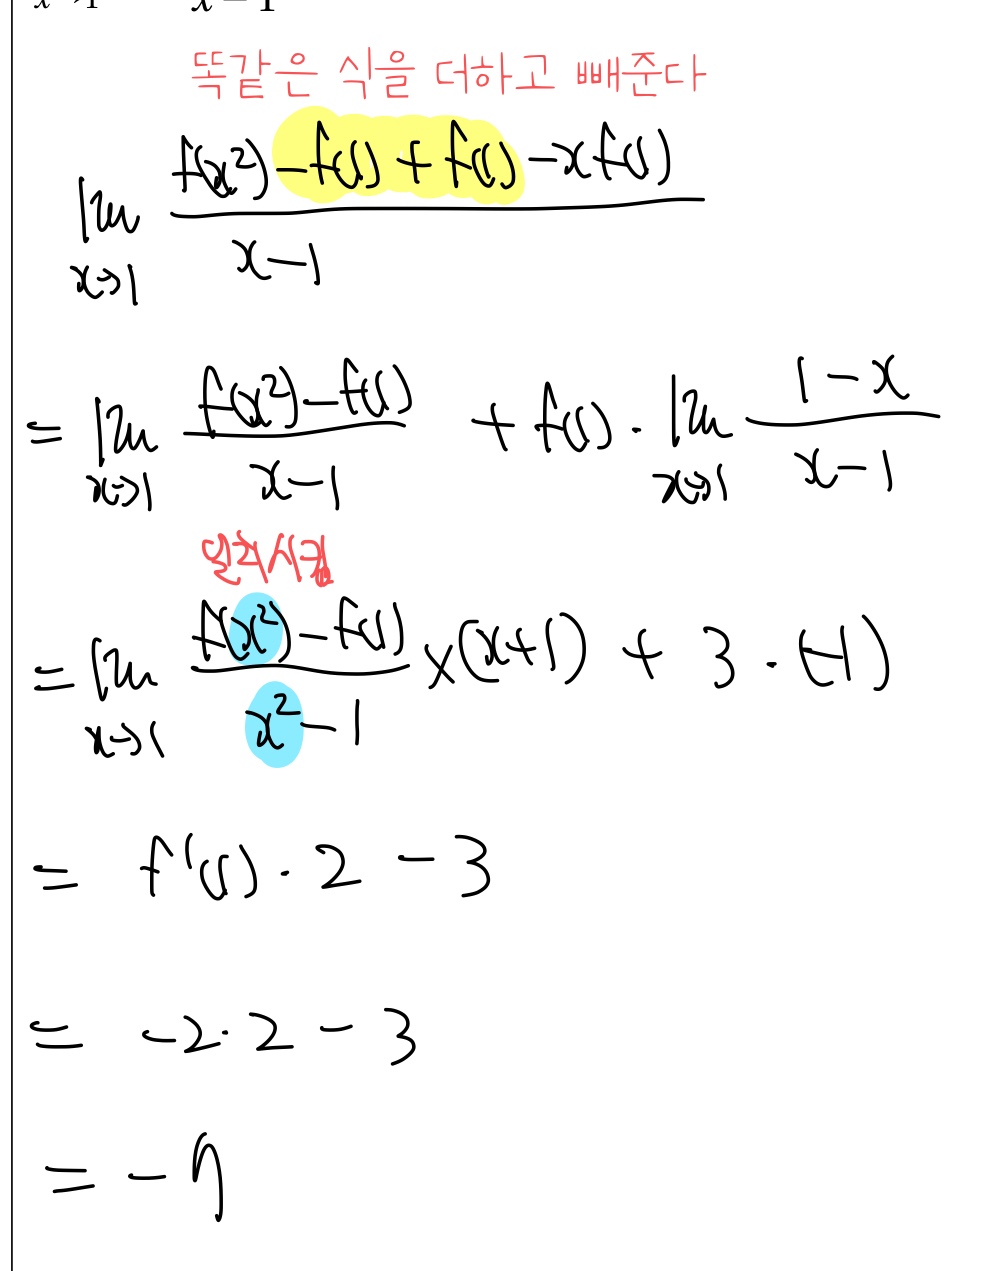 x→1 x−1
똑같은 식을 더하고 빼준다
lim x→1 (f(x²) − f(1) + f(1) − xf(1)) / (x−1)
= lim x→1 (f(x²) − f(1)) / (x−1) + f(1) · lim x→1 (1−x) / (x−1)
일치시킴
= lim x→1 (f(x²) − f(1)) / (x²−1) × (x+1) + 3 · (−1)
= f'(1) · 2 − 3
= −2 · 2 − 3
= −7